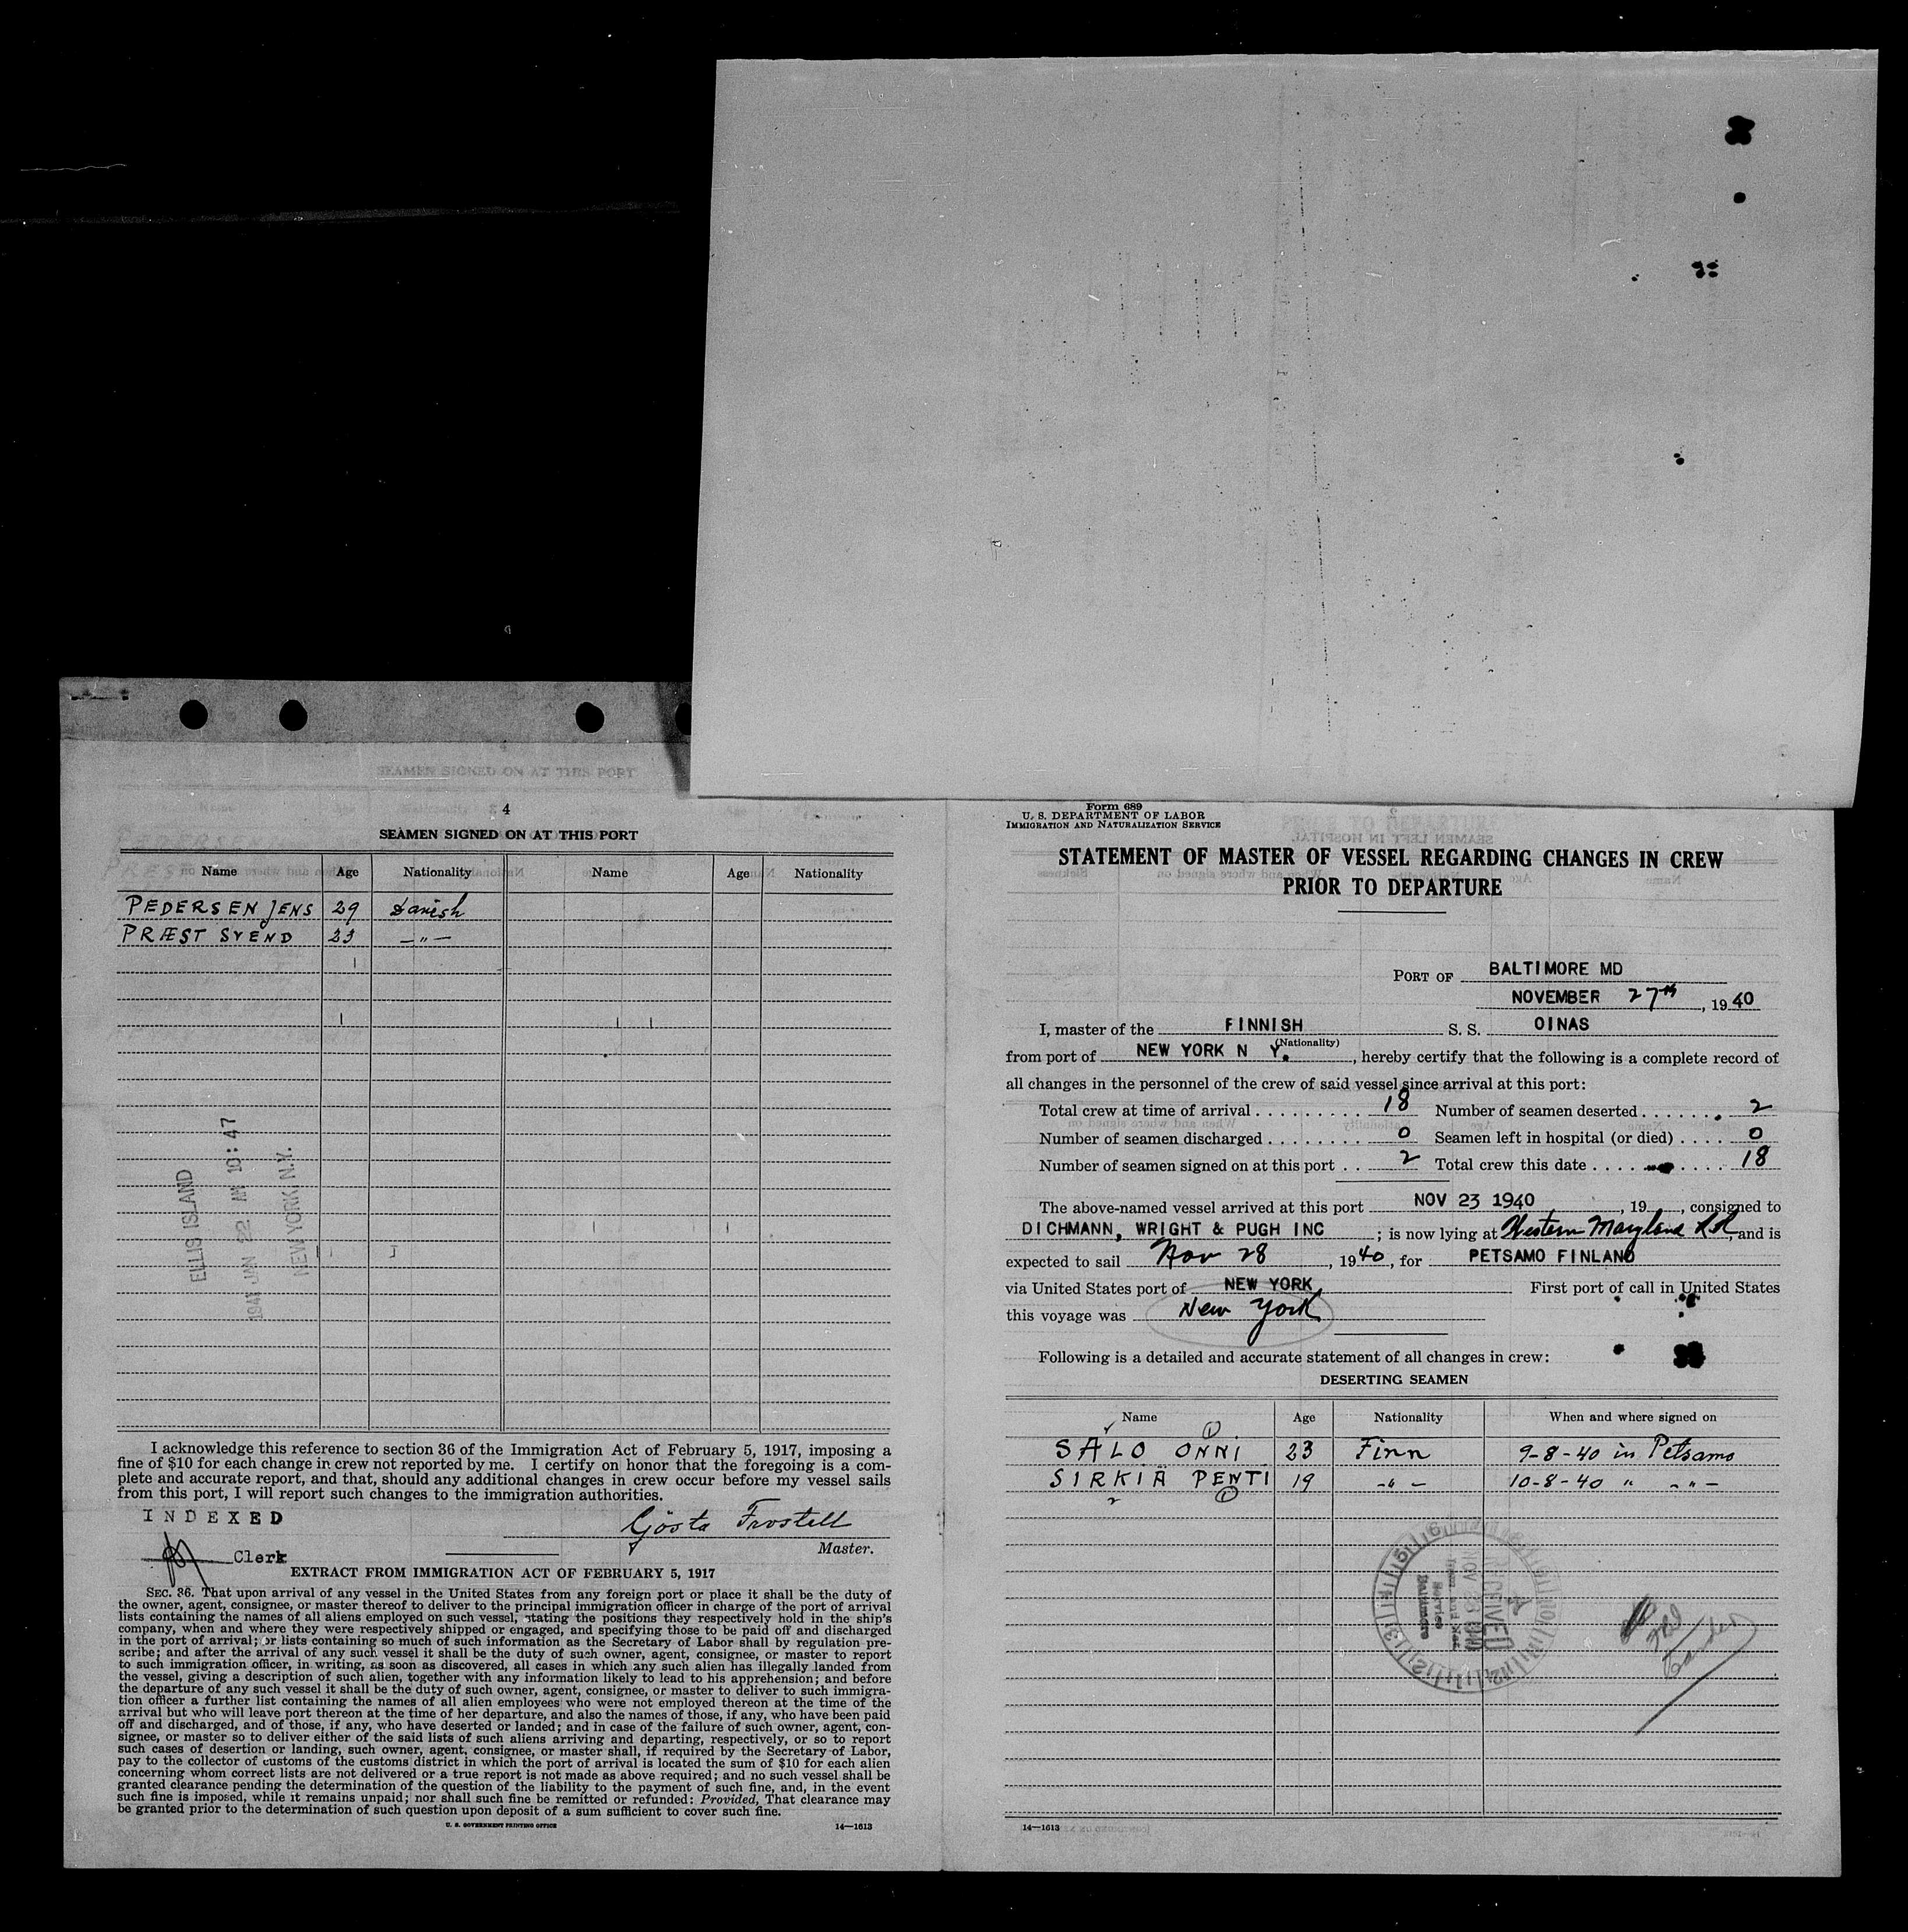 4
SEAMEN SIGNED ON AT THIS PORT
Name Age Nationality Name Age Nationality
PEDERSEN JENS 29 Danish
PRÆST SVEND 23 —"—
ELLIS ISLAND
1941 JAN 22 AM 10:47
NEW YORK N.Y.
I acknowledge this reference to section 36 of the Immigration Act of February 5, 1917, imposing a
fine of $10 for each change in crew not reported by me. I certify on honor that the foregoing is a com-
plete and accurate report, and that, should any additional changes in crew occur before my vessel sails
from this port, I will report such changes to the immigration authorities.
INDEXED
Gösta Frostell
Master.
Clerk
EXTRACT FROM IMMIGRATION ACT OF FEBRUARY 5, 1917
SEC. 36. That upon arrival of any vessel in the United States from any foreign port or place it shall be the duty of
the owner, agent, consignee, or master thereof to deliver to the principal immigration officer in charge of the port of arrival
lists containing the names of all aliens employed on such vessel, stating the positions they respectively hold in the ship's
company, when and where they were respectively shipped or engaged, and specifying those to be paid off and discharged
in the port of arrival; or lists containing so much of such information as the Secretary of Labor shall by regulation pre-
scribe; and after the arrival of any such vessel it shall be the duty of such owner, agent, consignee, or master to report
to such immigration officer, in writing, as soon as discovered, all cases in which any such alien has illegally landed from
the vessel, giving a description of such alien, together with any information likely to lead to his apprehension; and before
the departure of any such vessel it shall be the duty of such owner, agent, consignee, or master to deliver to such immigra-
tion officer a further list containing the names of all alien employees who were not employed thereon at the time of the
arrival but who will leave port thereon at the time of her departure, and also the names of those, if any, who have been paid
off and discharged, and of those, if any, who have deserted or landed; and in case of the failure of such owner, agent, con-
signee, or master so to deliver either of the said lists of such aliens arriving and departing, respectively, or so to report
such cases of desertion or landing, such owner, agent, consignee, or master shall, if required by the Secretary of Labor,
pay to the collector of customs of the customs district in which the port of arrival is located the sum of $10 for each alien
concerning whom correct lists are not delivered or a true report is not made as above required; and no such vessel shall be
granted clearance pending the determination of the question of the liability to the payment of such fine, and, in the event
such fine is imposed, while it remains unpaid; nor shall such fine be remitted or refunded: Provided, That clearance may
be granted prior to the determination of such question upon deposit of a sum sufficient to cover such fine.
U. S. GOVERNMENT PRINTING OFFICE 14—1613
Form 689
U. S. DEPARTMENT OF LABOR
IMMIGRATION AND NATURALIZATION SERVICE
STATEMENT OF MASTER OF VESSEL REGARDING CHANGES IN CREW
PRIOR TO DEPARTURE
PORT OF BALTIMORE MD
NOVEMBER 27th, 1940
I, master of the FINNISH S. S. OINAS
(Nationality)
from port of NEW YORK N Y., hereby certify that the following is a complete record of
all changes in the personnel of the crew of said vessel since arrival at this port:
Total crew at time of arrival . . . . . . . . . 18 Number of seamen deserted . . . . . . . 2
Number of seamen discharged . . . . . . . . 0 Seamen left in hospital (or died) . . . . 0
Number of seamen signed on at this port . . 2 Total crew this date . . . . . . . . 18
The above-named vessel arrived at this port NOV 23 1940, 19, consigned to
DICHMANN, WRIGHT & PUGH INC ; is now lying at Western Maryland RR, and is
expected to sail Nov 28, 1940, for PETSAMO FINLAND
via United States port of NEW YORK First port of call in United States
this voyage was New York
Following is a detailed and accurate statement of all changes in crew:
DESERTING SEAMEN
Name Age Nationality When and where signed on
SALO ONNI 1 23 Finn 9-8-40 in Petsamo
SIRKIÄ PENTI 1 19 -"- 10-8-40 " -"-
RECEIVED
NOV 28 1940
Service
Baltimore
14—1613